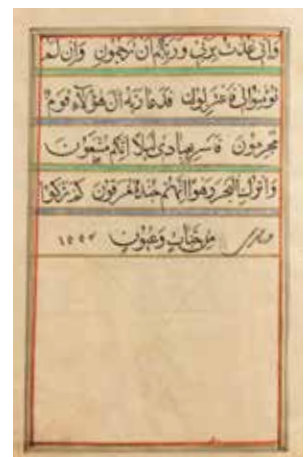 وَانِّي عُذْتُ بِرَبِّي وَرَبِّكُمْ اَنْ تَرْجُمُونِ وَاِنْ لَمْ
تُؤْمِنُوا لِي فَاعْتَزِلُونِ فَدَعَا رَبَّهُ اَنَّ هٰؤُلَاءِ قَوْمٌ
مُجْرِمُونَ فَاَسْرِ بِعِبَادِي لَيْلًا اِنَّكُمْ مُتَّبَعُونَ
وَاتْرُكِ الْبَحْرَ رَهْوًا اِنَّهُمْ جُنْدٌ مُغْرَقُونَ كَمْ تَرَكُوا
مِنْ جَنَّاتٍ وَعُيُونٍ